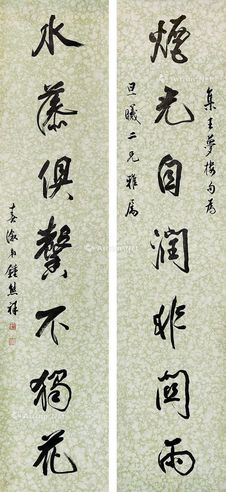 煙光自潤非關雨
集王夢樓句為
旦曦二兄雅屬
水藻俱馨不獨花
弟鍾熊祥